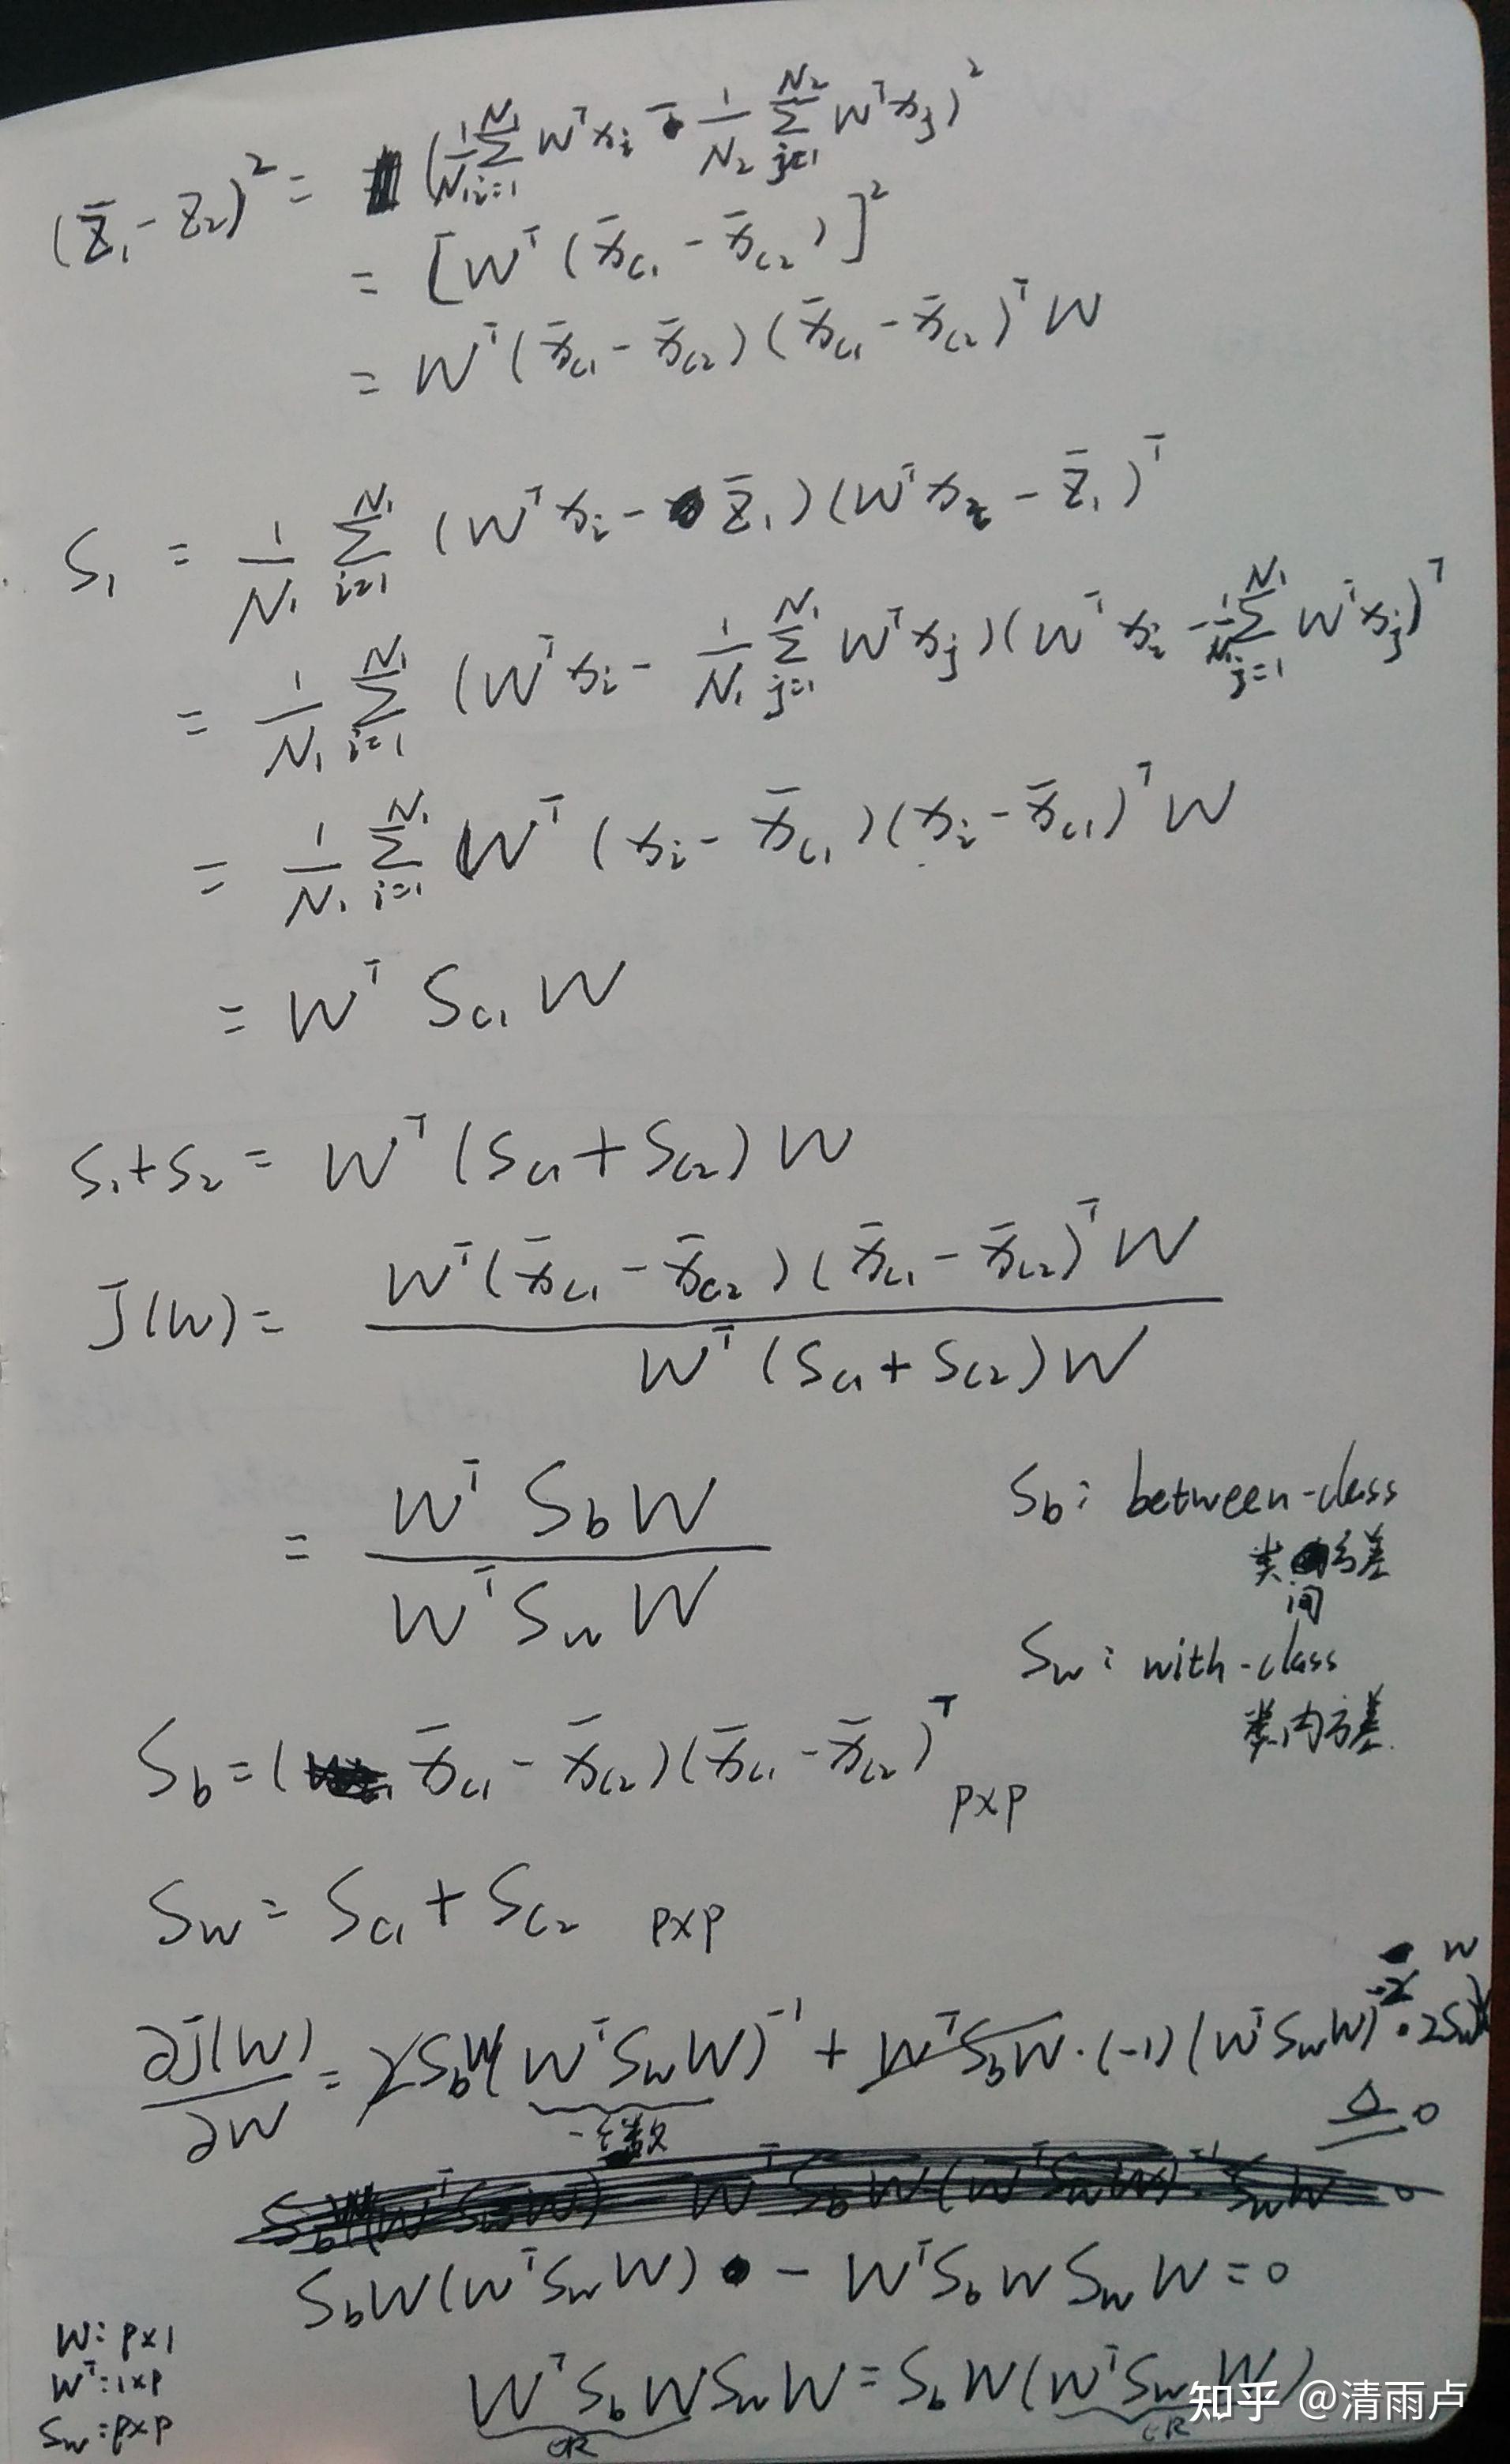 (z̄₁ - z̄₂)² = (1/N₁ Σᵢ₌₁^N₁ Wᵀxᵢ - 1/N₂ Σⱼ₌₁^N₂ Wᵀxⱼ)²
= [Wᵀ(x̄c₁ - x̄c₂)]²
= Wᵀ(x̄c₁ - x̄c₂)(x̄c₁ - x̄c₂)ᵀW
S₁ = 1/N₁ Σᵢ₌₁^N₁ (Wᵀxᵢ - z̄₁)(Wᵀxᵢ - z̄₁)ᵀ
= 1/N₁ Σᵢ₌₁^N₁ (Wᵀxᵢ - 1/N₁ Σⱼ₌₁^N₁ Wᵀxⱼ)(Wᵀxᵢ - 1/N₁ Σⱼ₌₁^N₁ Wᵀxⱼ)ᵀ
= 1/N₁ Σᵢ₌₁^N₁ Wᵀ(xᵢ - x̄c₁)(xᵢ - x̄c₁)ᵀW
= Wᵀ Sc₁ W
S₁+S₂ = Wᵀ(Sc₁+Sc₂)W
J(W) = Wᵀ(x̄c₁ - x̄c₂)(x̄c₁ - x̄c₂)ᵀW / Wᵀ(Sc₁+Sc₂)W
= WᵀSbW / WᵀSwW
Sb: between-class
类间方差
Sw: with-class
类内方差
Sb = (x̄c₁ - x̄c₂)(x̄c₁ - x̄c₂)ᵀ p×p
Sw = Sc₁ + Sc₂ p×p
∂J(W)/∂W = 2SbW(WᵀSwW)⁻¹ + WᵀSbW·(-1)(WᵀSwW)⁻²·2SwW ≜ 0
SbW(WᵀSwW) - WᵀSbWSwW = 0
WᵀSbWSwW = SbW(WᵀSwW)
∈R ∈R
W: p×1
Wᵀ: 1×p
Sw: p×p
知乎 @清雨卢